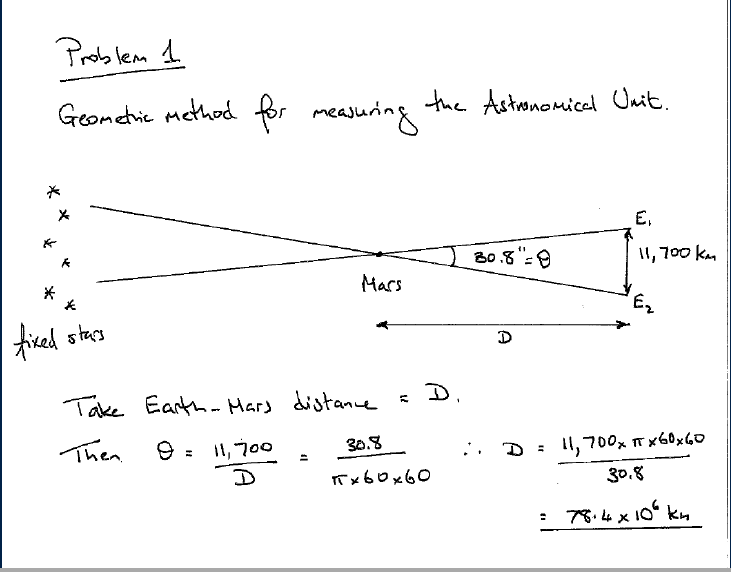 Problem 1
Geometric method for measuring the Astronomical Unit.
E₁
30.8" = θ
11,700 km
Mars
E₂
fixed stars
D
Take Earth-Mars distance = D.
Then θ = 11,700 / D = 30.8 / π×60×60 ∴ D = 11,700 × π × 60×60 / 30.8
= 78.4 × 10⁶ km